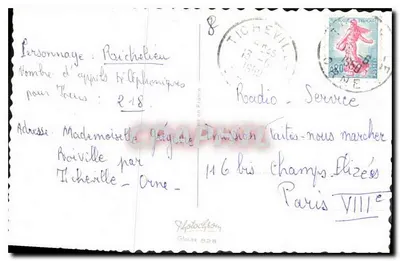 8
Personnage : Richelieu
Nombre d'appels téléphoniques
pour Tiens : 218
Adresse Mademoiselle
Roiville par
Ticheville - Orne -
TICHEVILLE
Radio - Service
Emission Faites-nous marcher
116 bis Champs Elizées
Paris VIIIe